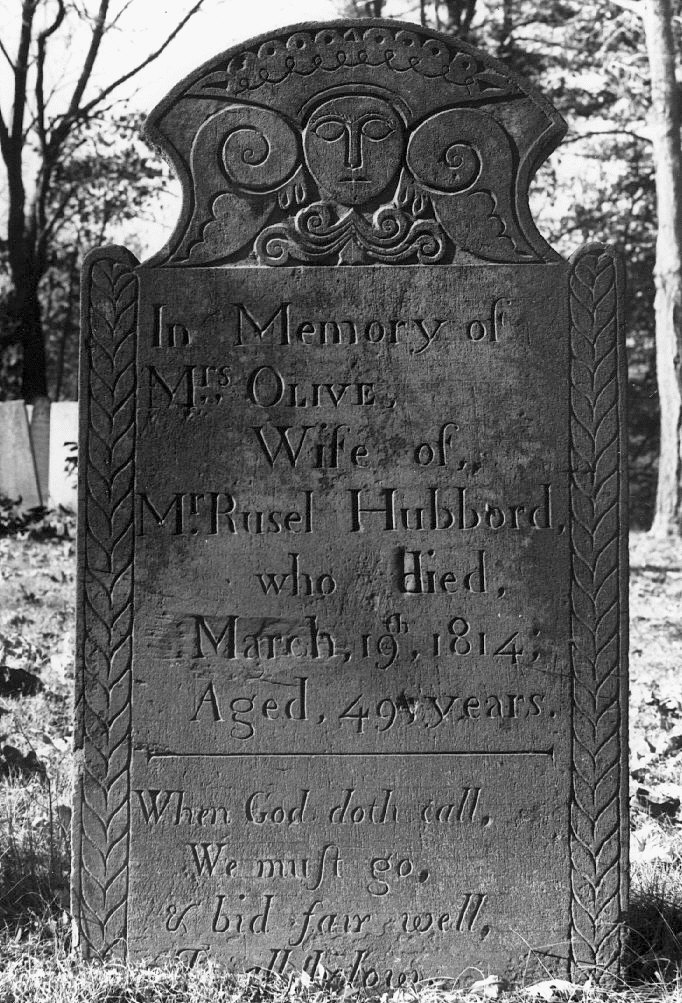 In Memory of
Mrs. OLIVE,
Wife of,
Mr. Rusel Hubbord,
who died,
March, 19th, 1814;
Aged, 49, years.
When God doth call,
We muſt go,
& bid fair well,
To all below